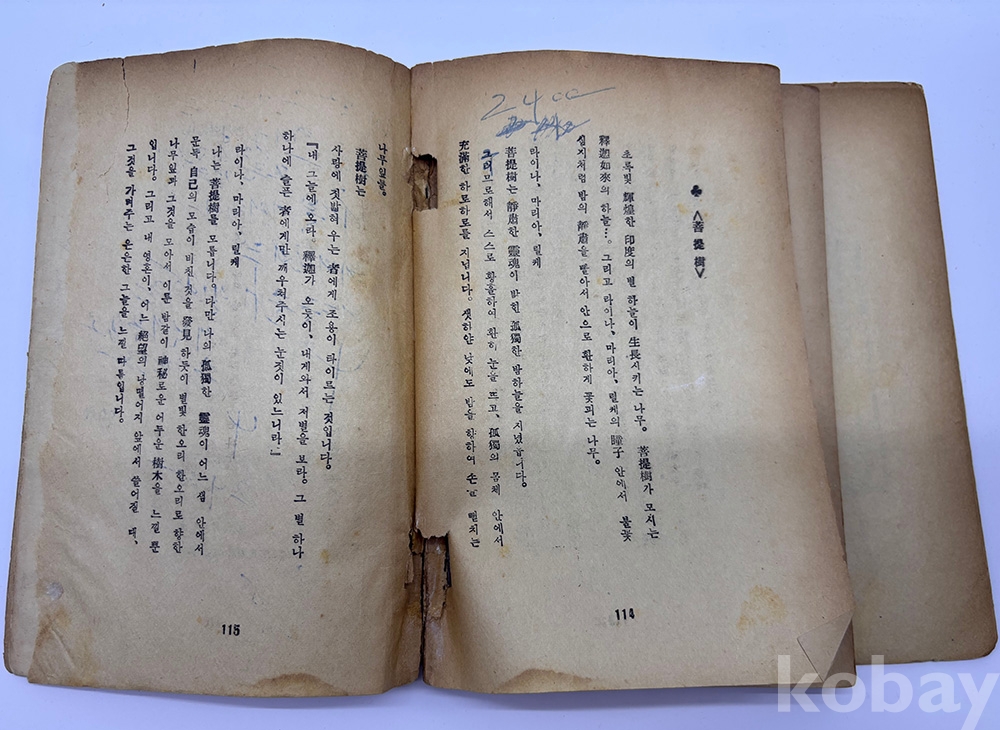 2400
♣ 〈菩提樹〉
초록빛 輝煌한 印度의 별 하늘이 生長시키는 나무。 菩提樹가 모시는
釋迦如來의 하늘…。 그리고 라이나、마리아、릴케의 瞳子 안에서 불꽃
심지처럼 밤의 靜肅을 빨아서 안으로 환하게 꽃피는 나무。
라이나、마리아、릴케
菩提樹는 靜肅한 靈魂이 밝힌 孤獨한 밤하늘을 지녔습니다。
그러므로해서 스스로 황홀하여 환히 눈을 뜨고、孤獨의 몸체 안에서
充滿한 하로하로를 지닙니다。 샛하얀 낮에도 밤을 향하여 손을 펼치는
114
나무잎들。
菩提樹는
사랑에 짓밟혀 우는 者에게 조용이 타이르는 것입니다。
『내 그늘에 오라。釋迦가 오듯이、내게와서 저별을 보라。그 별 하나
하나에 슬픈 者에게만 깨우처주시는 눈짓이 있느니라』
라이나、마리아、릴케
나는 菩提樹를 모릅니다。다만 나의 孤獨한 靈魂이 어느 샘 안에서
문득 自己의 모습이 비친 것을 發見하듯이 별빛 한오리 한오리로 향한
나무잎과 그것을 모아서 이룬 밤같이 神秘로운 어두운 樹木을 느낄 뿐
입니다。그리고 내 영혼이、어느 絕望의 낭떨어지 앞에서 쓸어질 때、
그것을 가려주는 은은한 그늘을 느낄 따름입니다。
115
kobay